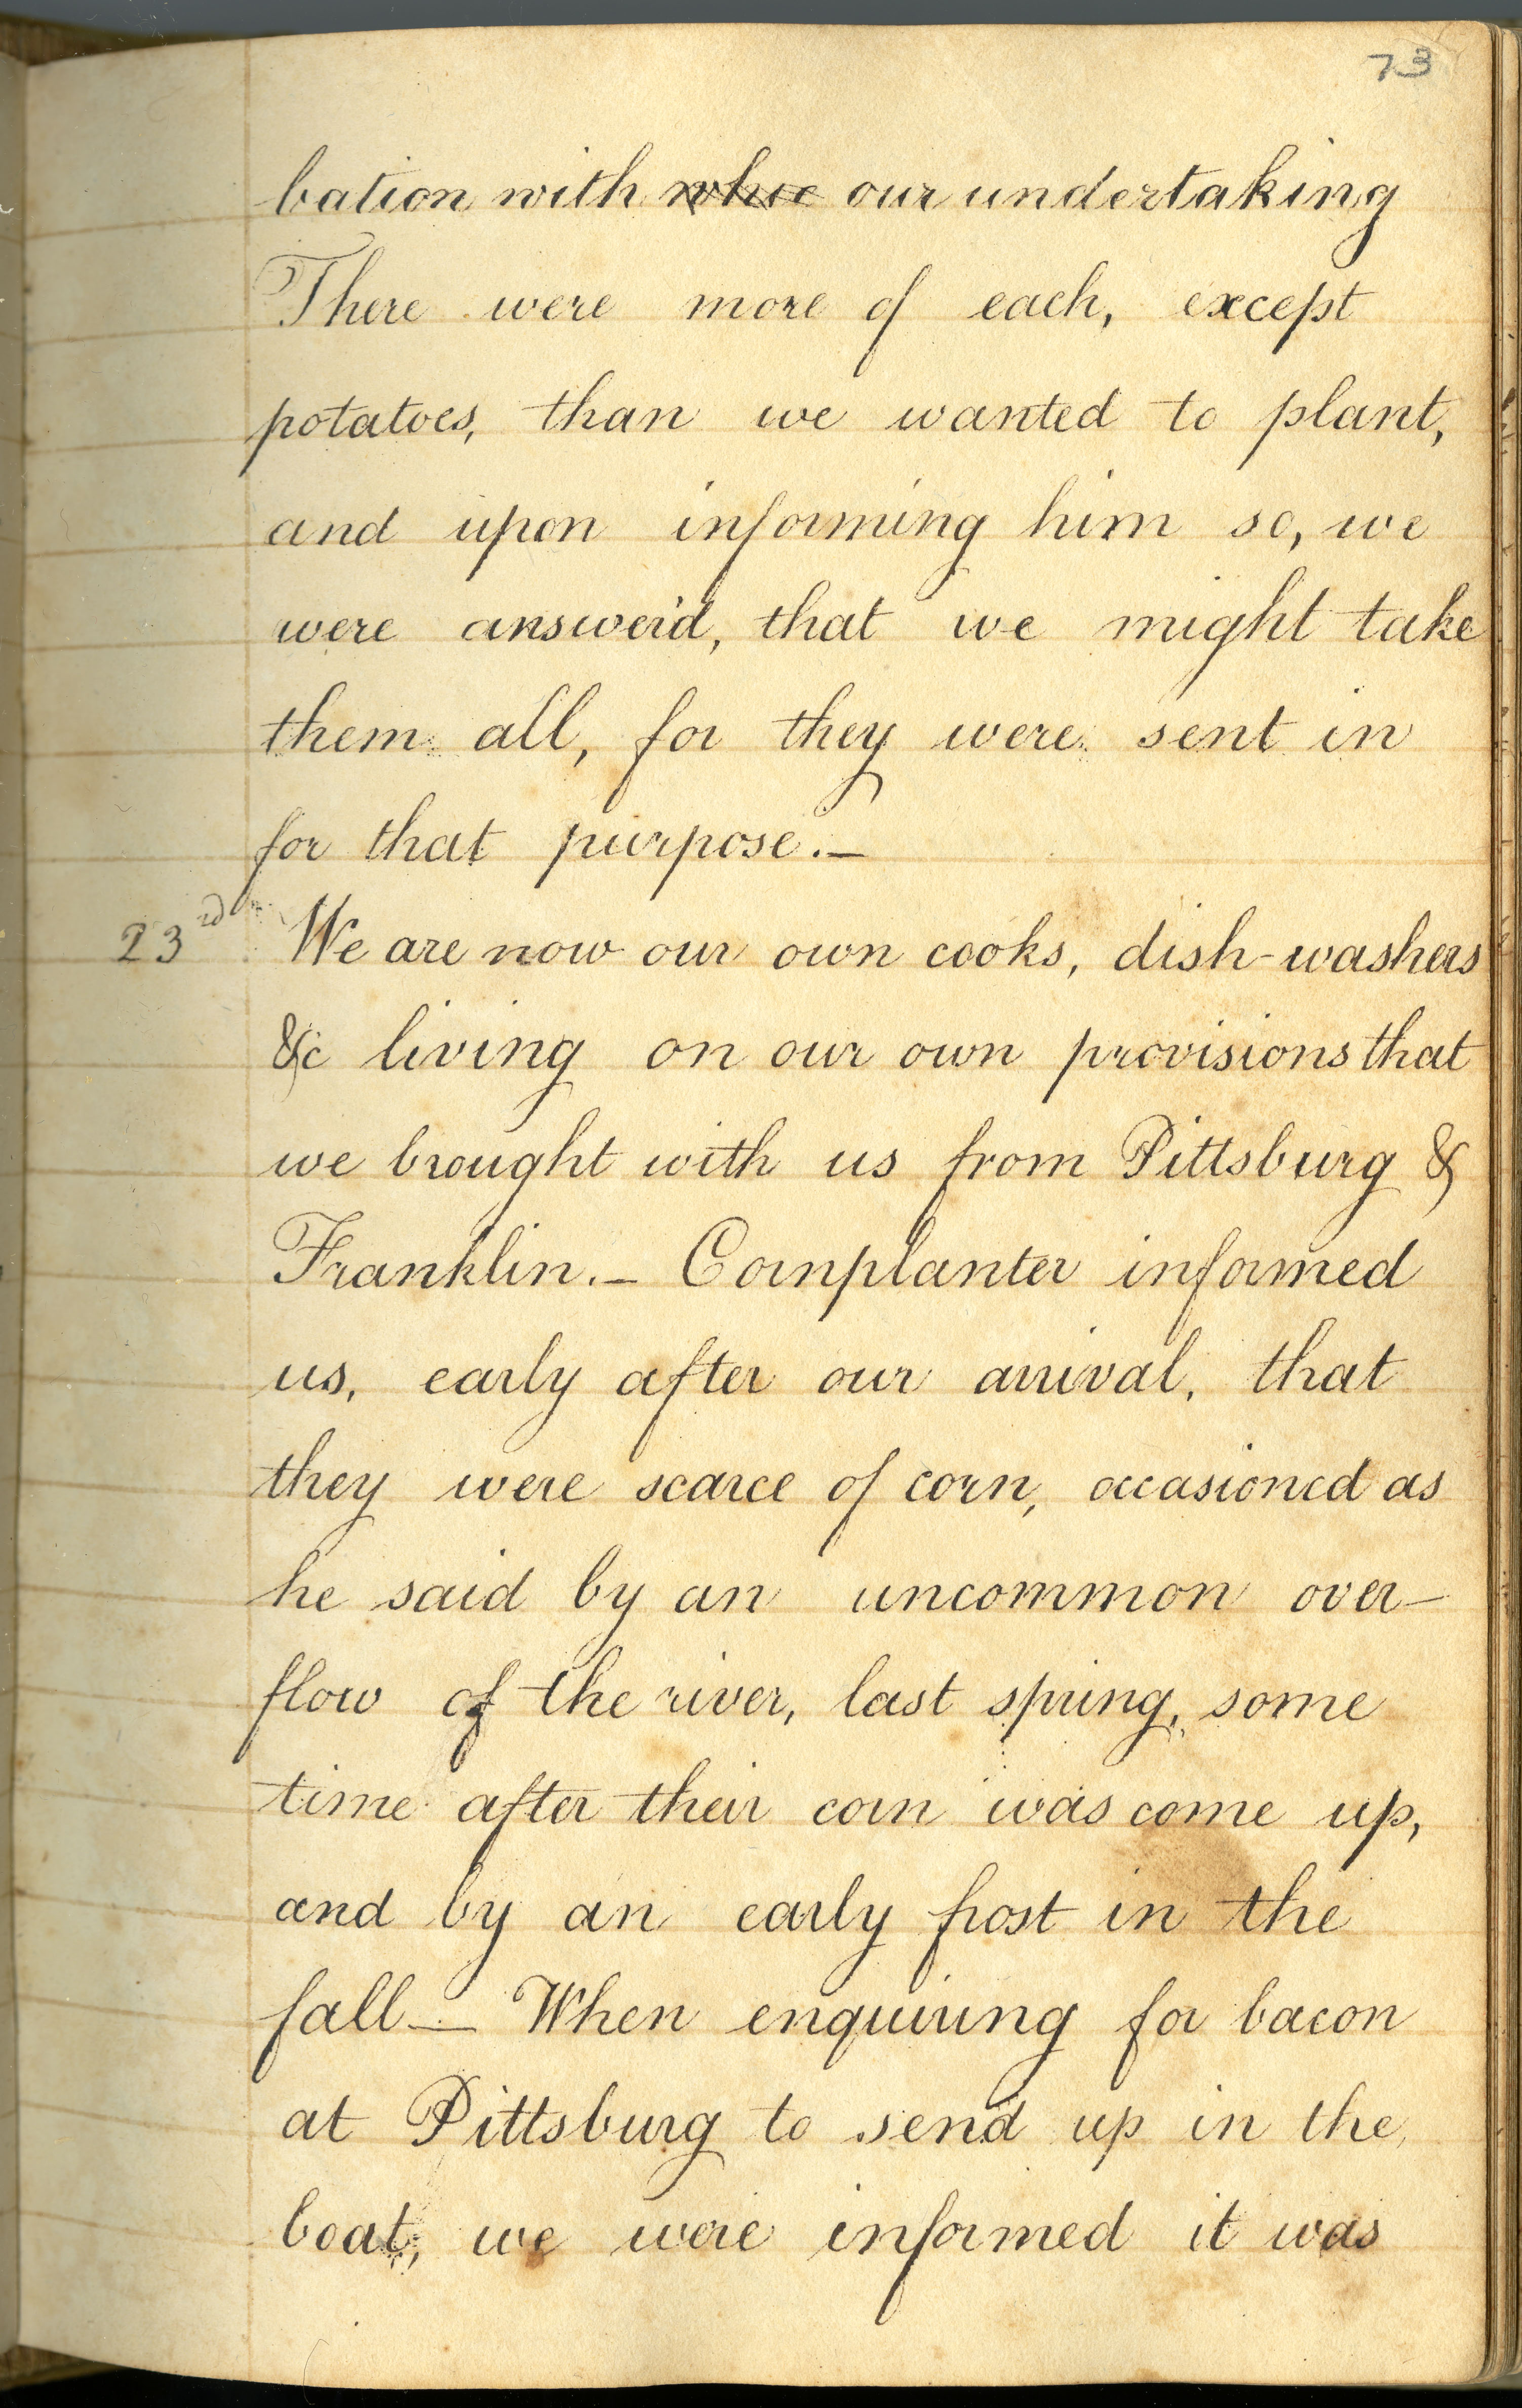 73
bation with whic our undertaking
There were more of each, except
potatoes, than we wanted to plant,
and upon informing him so, we
were answer'd, that we might take
them all, for they were sent in
for that purpose.—
23rd We are now our own cooks, dish-washers
&c living on our own provisions that
we brought with us from Pittsburg &
Franklin.— Cornplanter informed
us, early after our arrival, that
they were scarce of corn, occasioned as
he said by an uncommon over-
flow of the river, last spring, some
time after their corn was come up,
and by an early frost in the
fall— When enquiring for bacon
at Pittsburg to send up in the
boat, we were informed it was